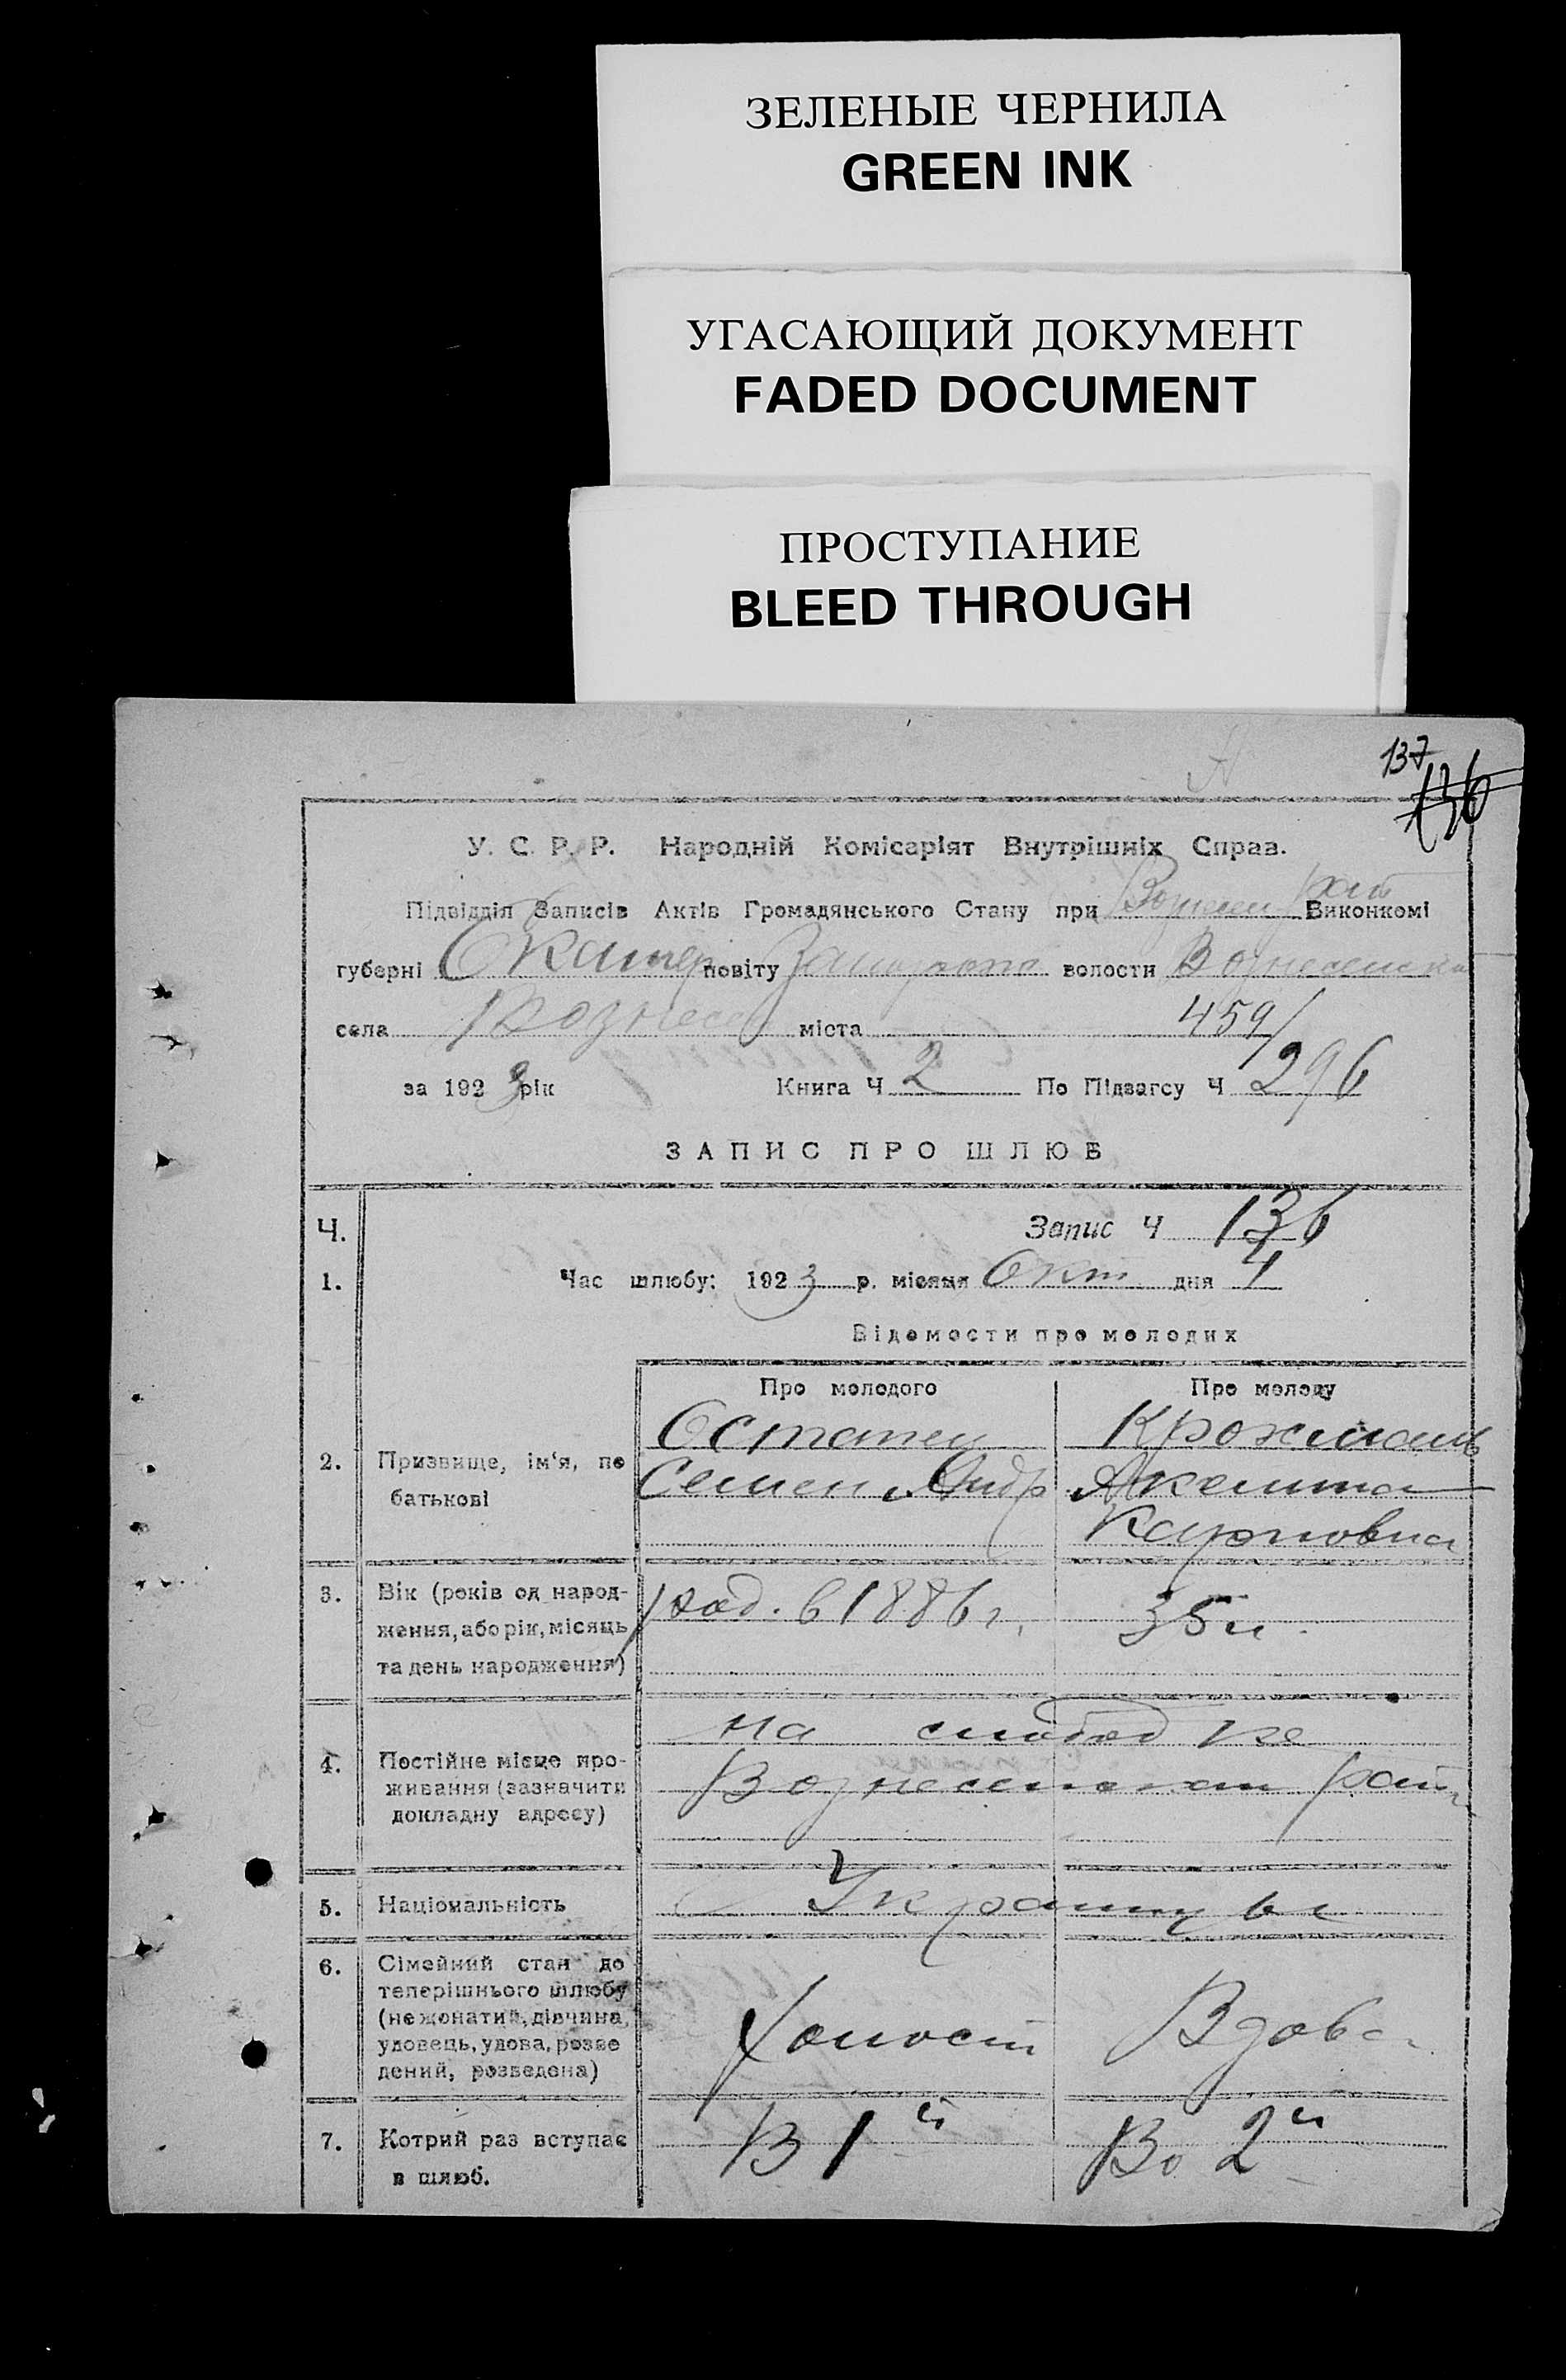 ЗЕЛЕНЫЕ ЧЕРНИЛА
GREEN INK
УГАСАЮЩИЙ ДОКУМЕНТ
FADED DOCUMENT
ПРОСТУПАНИЕ
BLEED THROUGH
137
136
У. С. Р. Р. Народній Комісаріят Внутрішніх Справ.
Підвідділ Записів Актів Громадянського Стану при Вознесен рай Виконкомі
губерні Екатер повіту волости Вознесенка
села Вознесен міста 459/
за 1923 рік Книга Ч 2 По Підзагсу Ч 296
ЗАПИС ПРО ШЛЮБ
Ч. Запис Ч 136
1. Час шлюбу: 1923 р. місяця Окт дня 4
Відомости про молодих
Про молодого Про молоду
2. Призвище, ім'я, по батькові
Остапец
Семен Андр
Акелина
Карповна
3. Вік (років од народ-
ження, або рік, місяць
та день народження)
род. в 1886 г. 35 л.
4. Постійне місце про-
живання (зазначити
докладну адресу)
на слободке
Вознесенском рай
5. Національність Украинцы
6. Сімейний стан до
теперішнього шлюбу
(нежонатий, дівчина,
удовець, удова, розве
дений, розведена)
Холост Вдова
7. Котрий раз вступає
в шлюб.
В 1й Во 2й